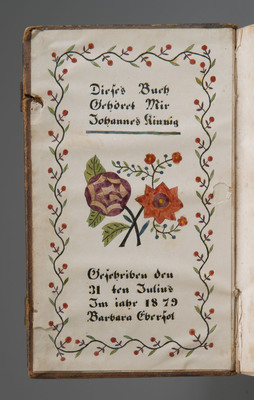 Dieses Buch
Gehöret Mir
Johannes Kinnig
Geschriben den
31 ten Julius
Im iahr 1879
Barbara Ebersol